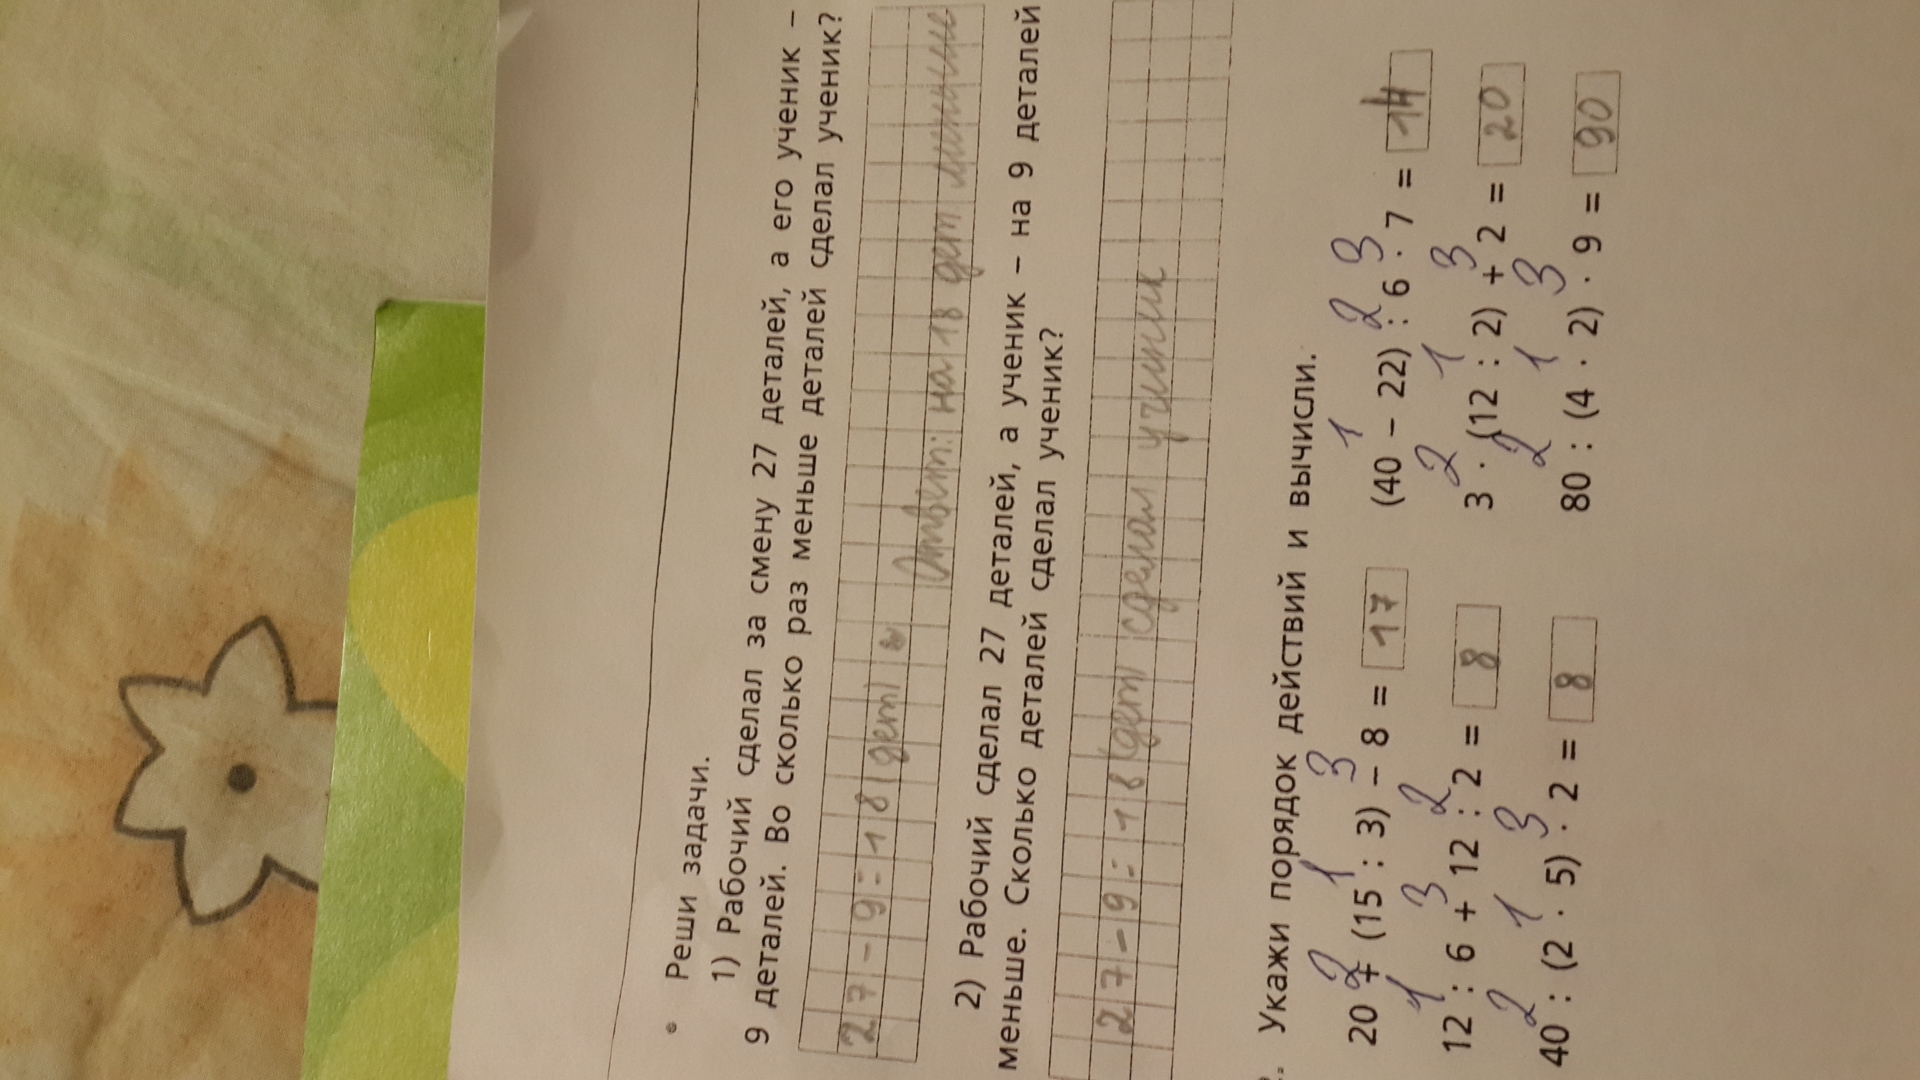 • Реши задачи.
1) Рабочий сделал за смену 27 деталей, а его ученик –
9 деталей. Во сколько раз меньше деталей сделал ученик?
27-9=18(дет)
Ответ: на 18 дет меньше
2) Рабочий сделал 27 деталей, а ученик – на 9 деталей
меньше. Сколько деталей сделал ученик?
27-9=18(дет) сделал ученик
Укажи порядок действий и вычисли.
2 1 3
20 + (15 : 3) – 8 = 17
1 3 2
12 : 6 + 12 : 2 = 8
2 1 3
40 : (2 · 5) · 2 = 8
1 2 3
(40 – 22) : 6 · 7 = 14
2 1 3
3 · (12 : 2) + 2 = 20
2 1 3
80 : (4 · 2) · 9 = 90